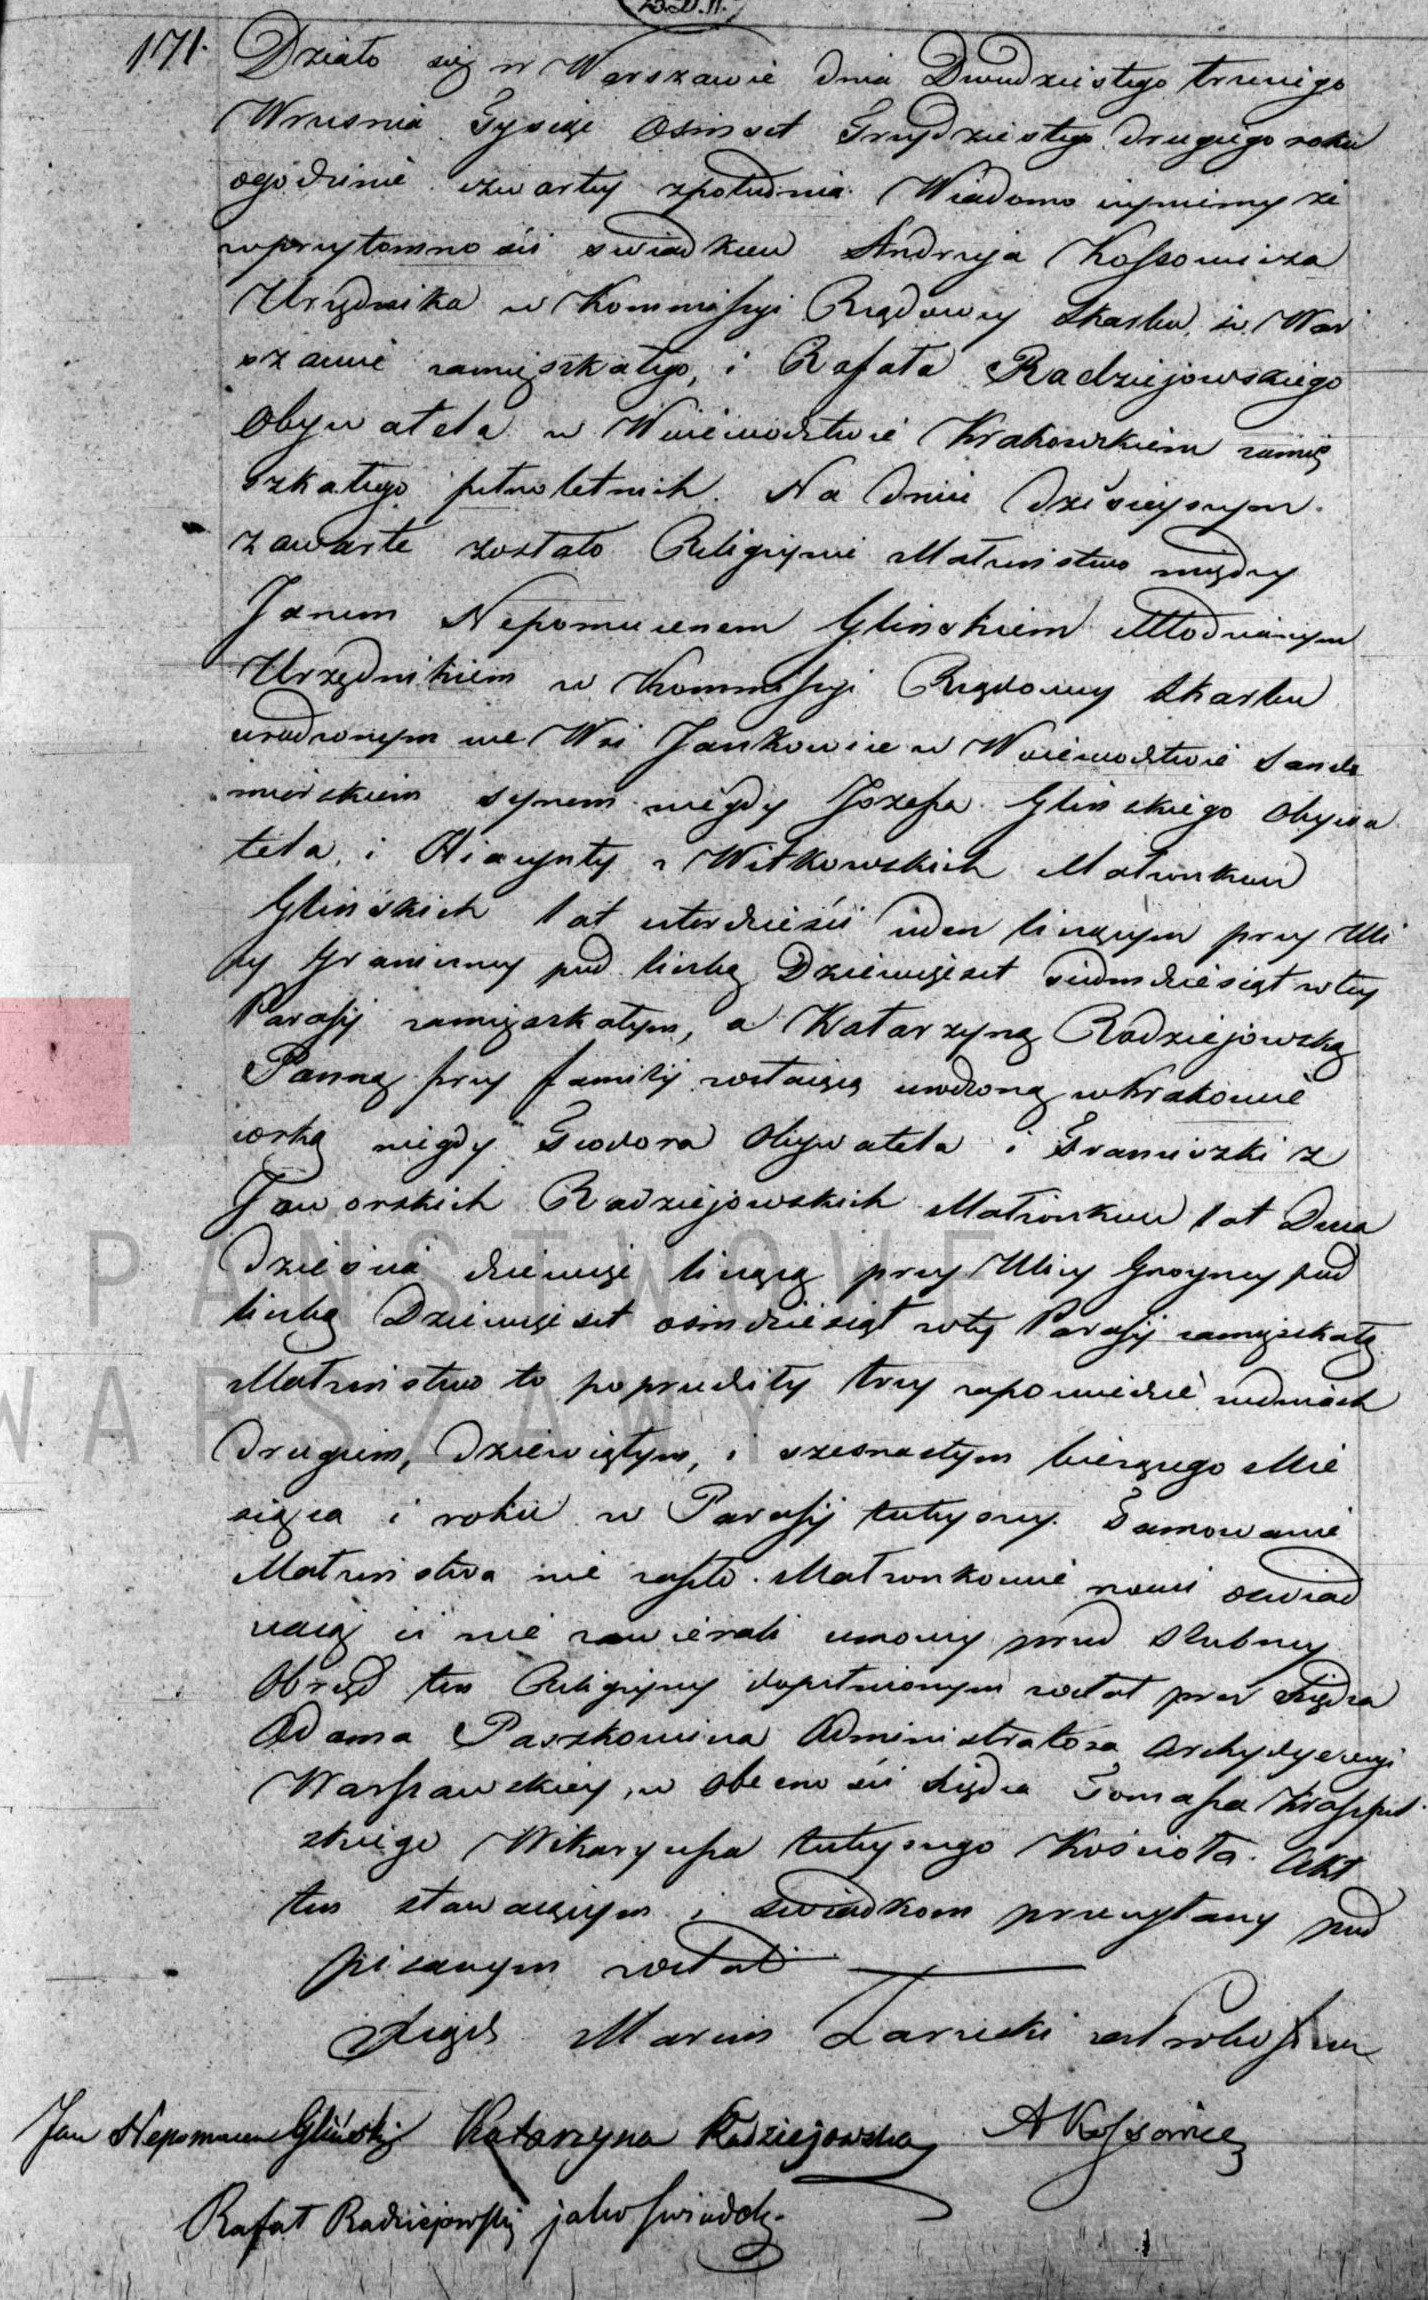 171. Działo się w Warszawie dnia Dwudziestego trzeciego
Wrzesnia Tysiąc Osmset Trzydziestego drugiego roku
ogodzinie czwartey zpołudnia. Wiadomo czyniemy że
wprzytomności swiadków Andrzeja Kossowicza
Urzędnika w Kommissyi Rządowey Skarbu, w War
szawie zamięszkałego, i Rafała Radziejowskiego
Obywatela w Woiewodztwie Krakowskiem zamię
szkałego pełnoletnich. Na dniu dzisieyszym
zawarte zostało Religiynie Małżeństwo między
Janem Nepomucenem Glińskiem Młodzianym
Urzędnikiem w Kommissyi Rządowey Skarbu
urodzonym we Wsi Jankowice w Woiewodztwie Sando
mirskiem synem niegdy Jozefa Glińskiego Obywa
tela, i Hiacynty z Witkowskich Małżonków
Glińskich lat czterdzieści ieden liczącym przy Uli
cy Graniczney pod liczbą Dziewięćset siedmdziesiąt wtey
Parafij zamięszkałym, a Katarzyną Radziejowską
Panną przy familij zostaiącą urodzoną wKrakowie
corką niegdy Teodora Obywatela i Franciszki z
Jaworskich Radziejowskich Małżonków lat Dwa
dzieścia dziewięć liczącą przy Ulicy Grzybney pod
liczbą Dziewięćset osmdziesiąt wtey Parafij zamięszkałą
Małżeństwo to poprzedziły trzy zapowiedzie wdniach
drugim, dziewiątym, i szesnastym bieżącego Mie
siąca i roku w Parafij tuteyszey. Tamowanie
Małżeństwa nie zaszło. Małżonkowie nowi oswiad
czaią iż nie zawierali umowy przed slubney
Obrząd ten Religiyny dopełnionym został przez Xiędza
Adama Paszkowicza Administratora Archydyecezyi
Warszawskiey, w obecności Xiędza Tomasza
skiego Wikaryusza tuteyszego Kościoła. Akt
ten stawaiącym i swiadkom przeczytany pod
pisanym został
Xiądz Marcin Zarzecki
Jan Nepomucen Gliński Katarzyna Radziejowska AKossowicz
Rafał Radziejowski jako swiadek